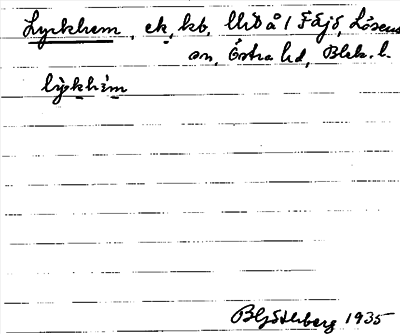 Lyckhem, ek, kb. Mlöå 1 Fäjö, Lösens
sn, Östra hd, Blek. l.
lỳckhèm
B Ljösterberg 1935